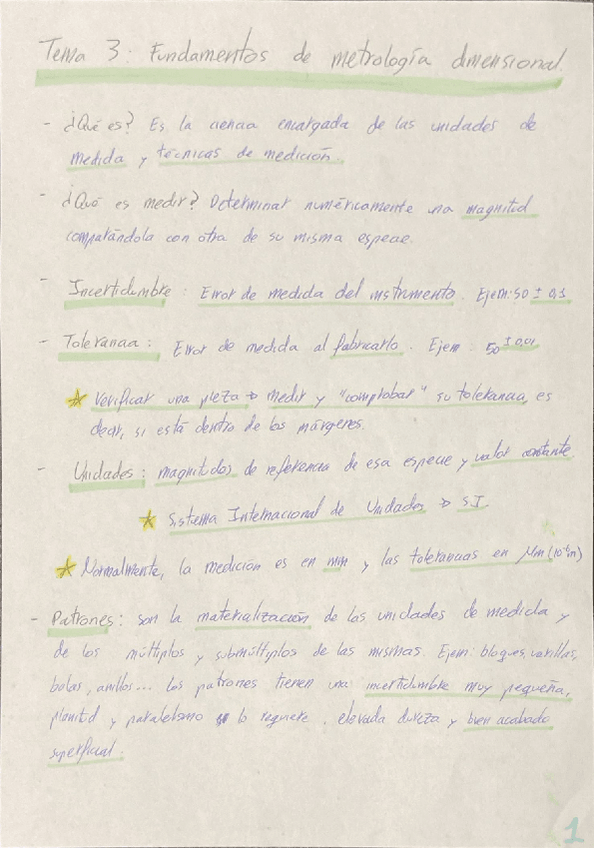 Tema 3: Fundamentos de metrología dimensional
- ¿Qué es? Es la ciencia encargada de las unidades de
medida y técnicas de medición.
- ¿Qué es medir? Determinar numéricamente una magnitud
comparándola con otra de su misma especie.
- Incertidumbre: Error de medida del instrumento. Ejem: 50 ± 0,1
- Tolerancia: Error de medida al fabricarlo. Ejem: 50 ± 0,01
★ Verificar una pieza → medir y "comprobar" su tolerancia, es
decir, si está dentro de los márgenes.
- Unidades: magnitudes de referencia de esa especie y valor constante.
★ Sistema Internacional de Unidades → S.I.
★ Normalmente, la medición es en mm y las tolerancias en μm (10⁻⁶m)
- Patrones: son la materialización de las unidades de medida y
de los múltiplos y submúltiplos de las mismas. Ejem: bloques, varillas,
bolas, anillos... Los patrones tienen una incertidumbre muy pequeña,
planitud y paralelismo lo requiere, elevada dureza y buen acabado
superficial.
1